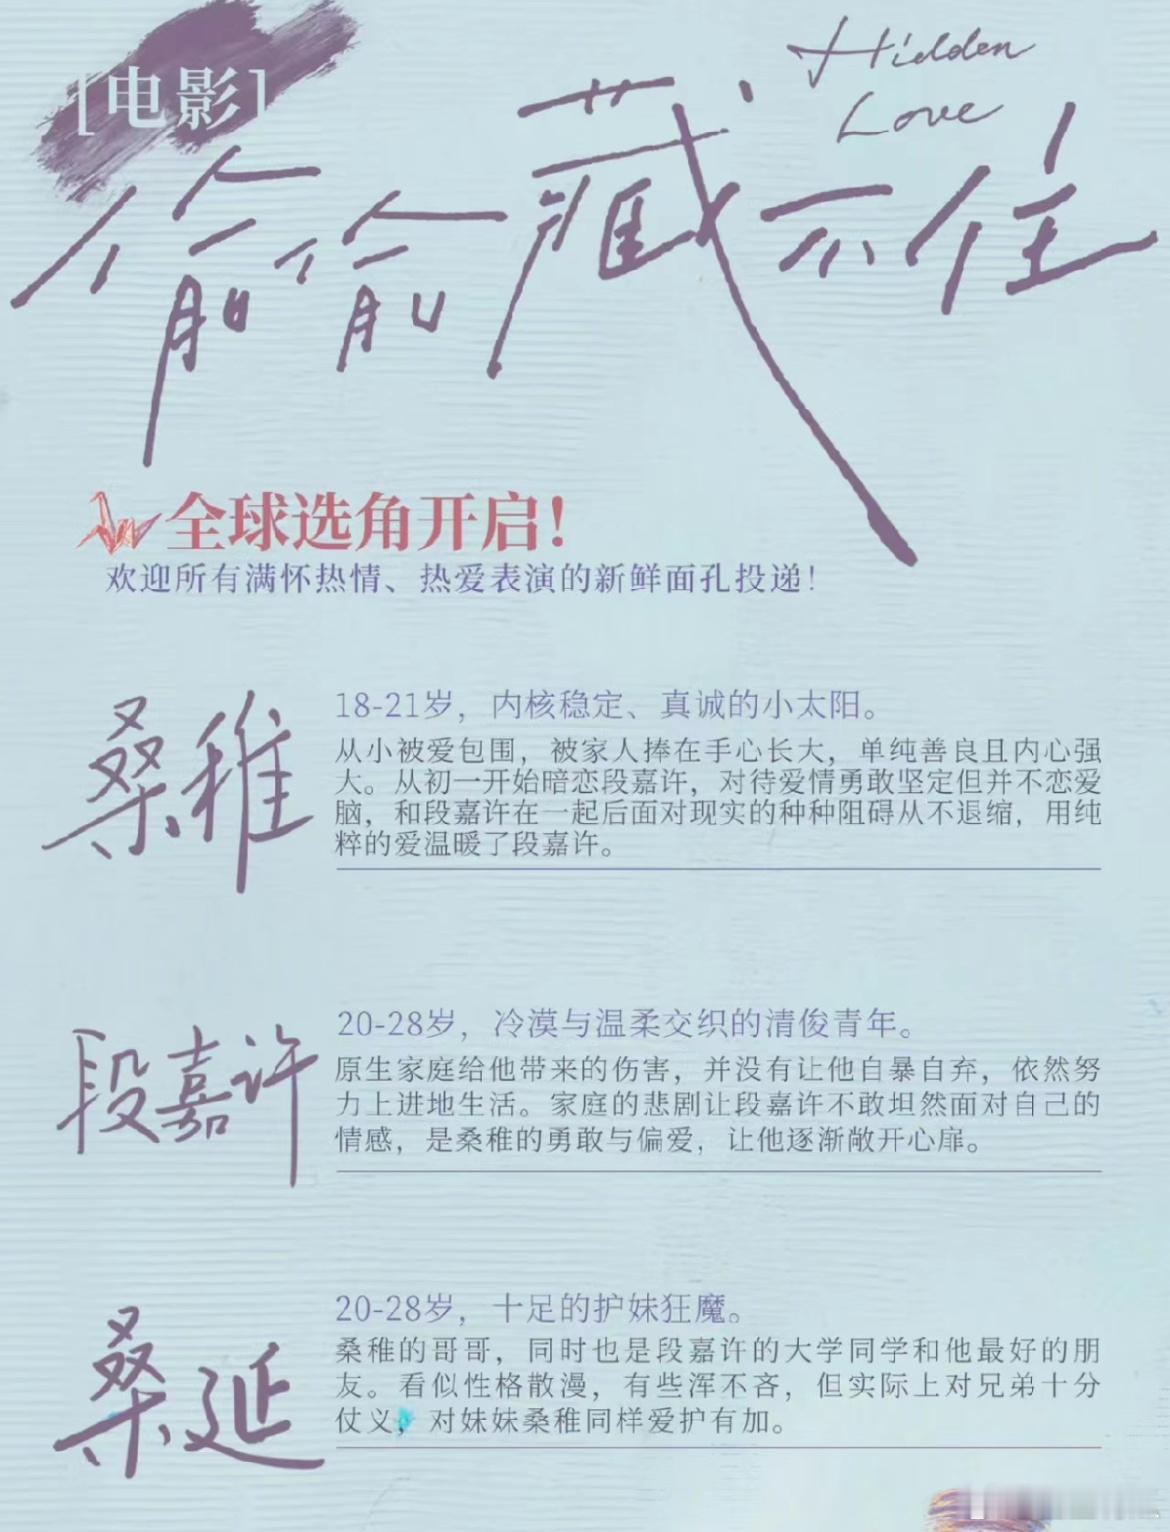 [电影]
Hidden
Love
偷偷藏不住
全球选角开启！
欢迎所有满怀热情、热爱表演的新鲜面孔投递！
桑稚
18-21岁，内核稳定、真诚的小太阳。
从小被爱包围，被家人捧在手心长大，单纯善良且内心强
大。从初一开始暗恋段嘉许，对待爱情勇敢坚定但并不恋爱
脑，和段嘉许在一起后面对现实的种种阻碍从不退缩，用纯
粹的爱温暖了段嘉许。
段嘉许
20-28岁，冷漠与温柔交织的清俊青年。
原生家庭给他带来的伤害，并没有让他自暴自弃，依然努
力上进地生活。家庭的悲剧让段嘉许不敢坦然面对自己的
情感，是桑稚的勇敢与偏爱，让他逐渐敞开心扉。
桑延
20-28岁，十足的护妹狂魔。
桑稚的哥哥，同时也是段嘉许的大学同学和他最好的朋
友。看似性格散漫，有些浑不吝，但实际上对兄弟十分
仗义，对妹妹桑稚同样爱护有加。